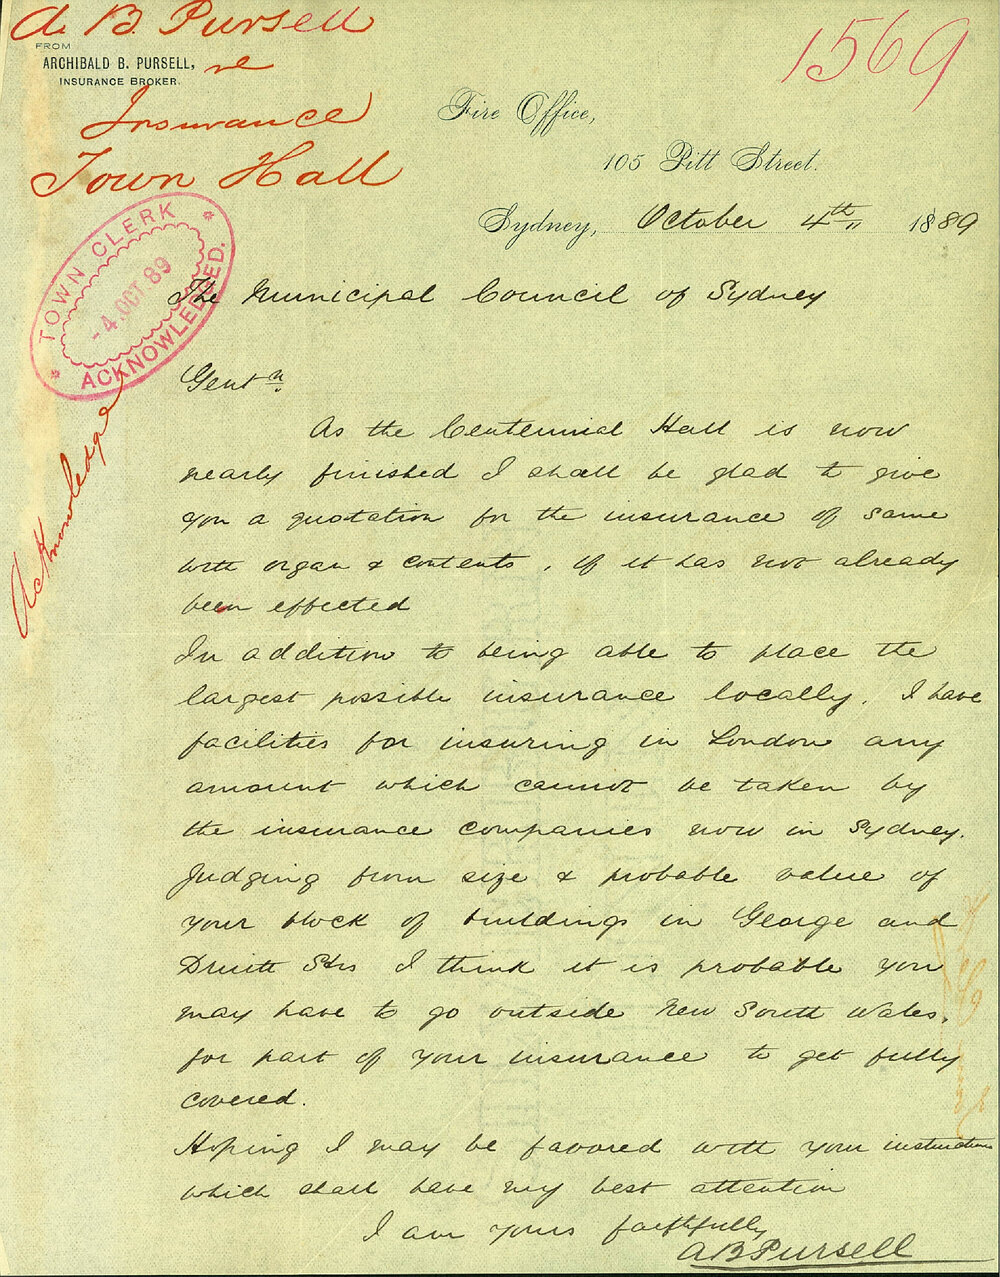 A. B. Pursell
FROM
ARCHIBALD B. PURSELL,
INSURANCE BROKER.
re
Insurance
Town Hall
1569
Fire Office,
105 Pitt Street.
Sydney, October 4th 1889
TOWN CLERK
- 4. OCT 89
ACKNOWLEDGED.
Acknowledge
The Municipal Council of Sydney
Gentn.
As the Centennial Hall is now
nearly finished I shall be glad to give
you a quotation for the insurance of same
with organ & contents, if it has not already
been effected
In addition to being able to place the
largest possible insurance locally, I have
facilities for insuring in London any
amount which cannot be taken by
the insurance companies now in Sydney.
Judging from size & probable value of
your block of buildings in George and
Druitt Sts I think it is probable you
may have to go outside New South Wales,
for part of your insurance to get fully
covered.
Hoping I may be favored with your instructions
which shall have my best attention
I am yours faithfully
A B Pursell